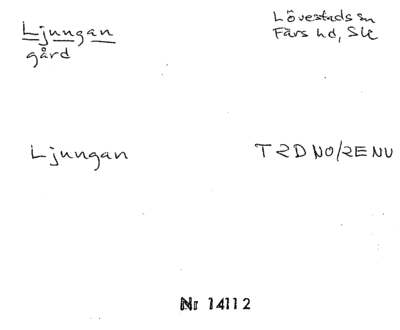 Ljungan
gård
Lövestads sn
Färs hd, Sk
Ljungan
T2D NO/2E NV
Nr 14112